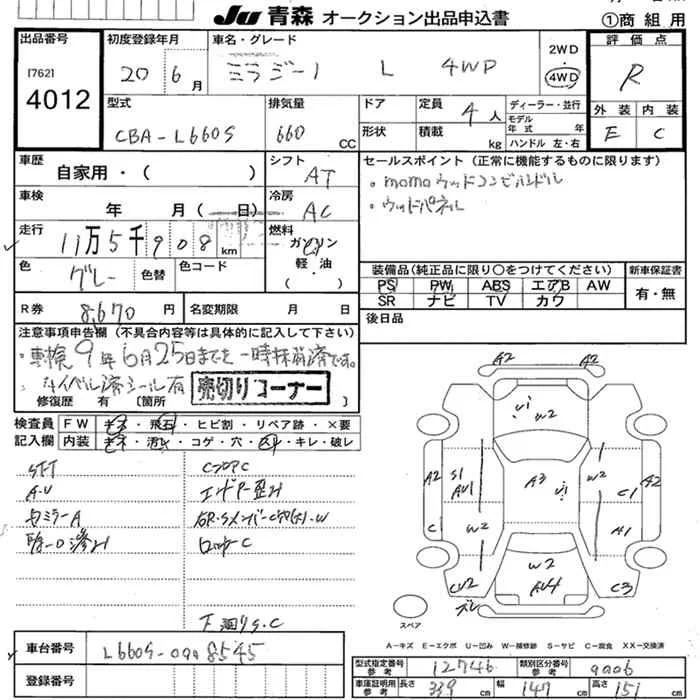 Ju 青森 オークション出品申込書
①商 組 用
出品番号
[762]
4012
初度登録年月
20 6月
車名・グレード
ミラジーノ L 4WD
2WD
4WD
評価点
R
型式
CBA-L660S
排気量
660 CC
ドア
形状
定員 4人
積載 kg
ディーラー・並行
モデル年式 年式
ハンドル 左・右
外装 内装
E C
車歴
自家用・( )
シフト
AT
セールスポイント(正常に機能するものに限ります)
。momoウッドコンビハンドル
。ウッドパネル
車検
年 月(日)
冷房
AC
走行
11万5千908km
燃料
ガソリン
軽・油
( ・ )
色
グレー
色替
色コード
装備品(純正品に限り○をつけてください)
PS PW ABS エアB AW
SR ナビ TV カワ
新車保証書
有・無
R券 8,670円
名変期限 月 日
後日品
注意事項申告欄(不具合内容等は具体的に記入して下さい)
・車検9年6月25日までを一時抹消済です。
・タイベル済シール有
売切りコーナー
修復歴 有 [箇所 ]
検査員記入欄
FW キズ・飛石・ヒビ割・リペア跡・×要
内装 キネ・汚れ・コゲ・穴・・キレ・破レ
ST-T
A・U
CフロアC
ミラーA
エンドP歪み
ロッカーC
下廻りS.C
A2 A2
U1 W2
A2 S1 AU1
A3
U1
W2
C1
A2
C1 W2
A1
W2
CW2
AU4
C3
ズレ
スペア
A-キズ E-エクボ U-凹み W-補修跡 S-サビ C-腐食 XX-交換済
車台番号
L660S-0008545
登録番号
型式指定番号 参考 12746
類別区分番号 参考 0006
車庫証明用 参考 長さ 339cm 幅 147cm 高さ 151cm